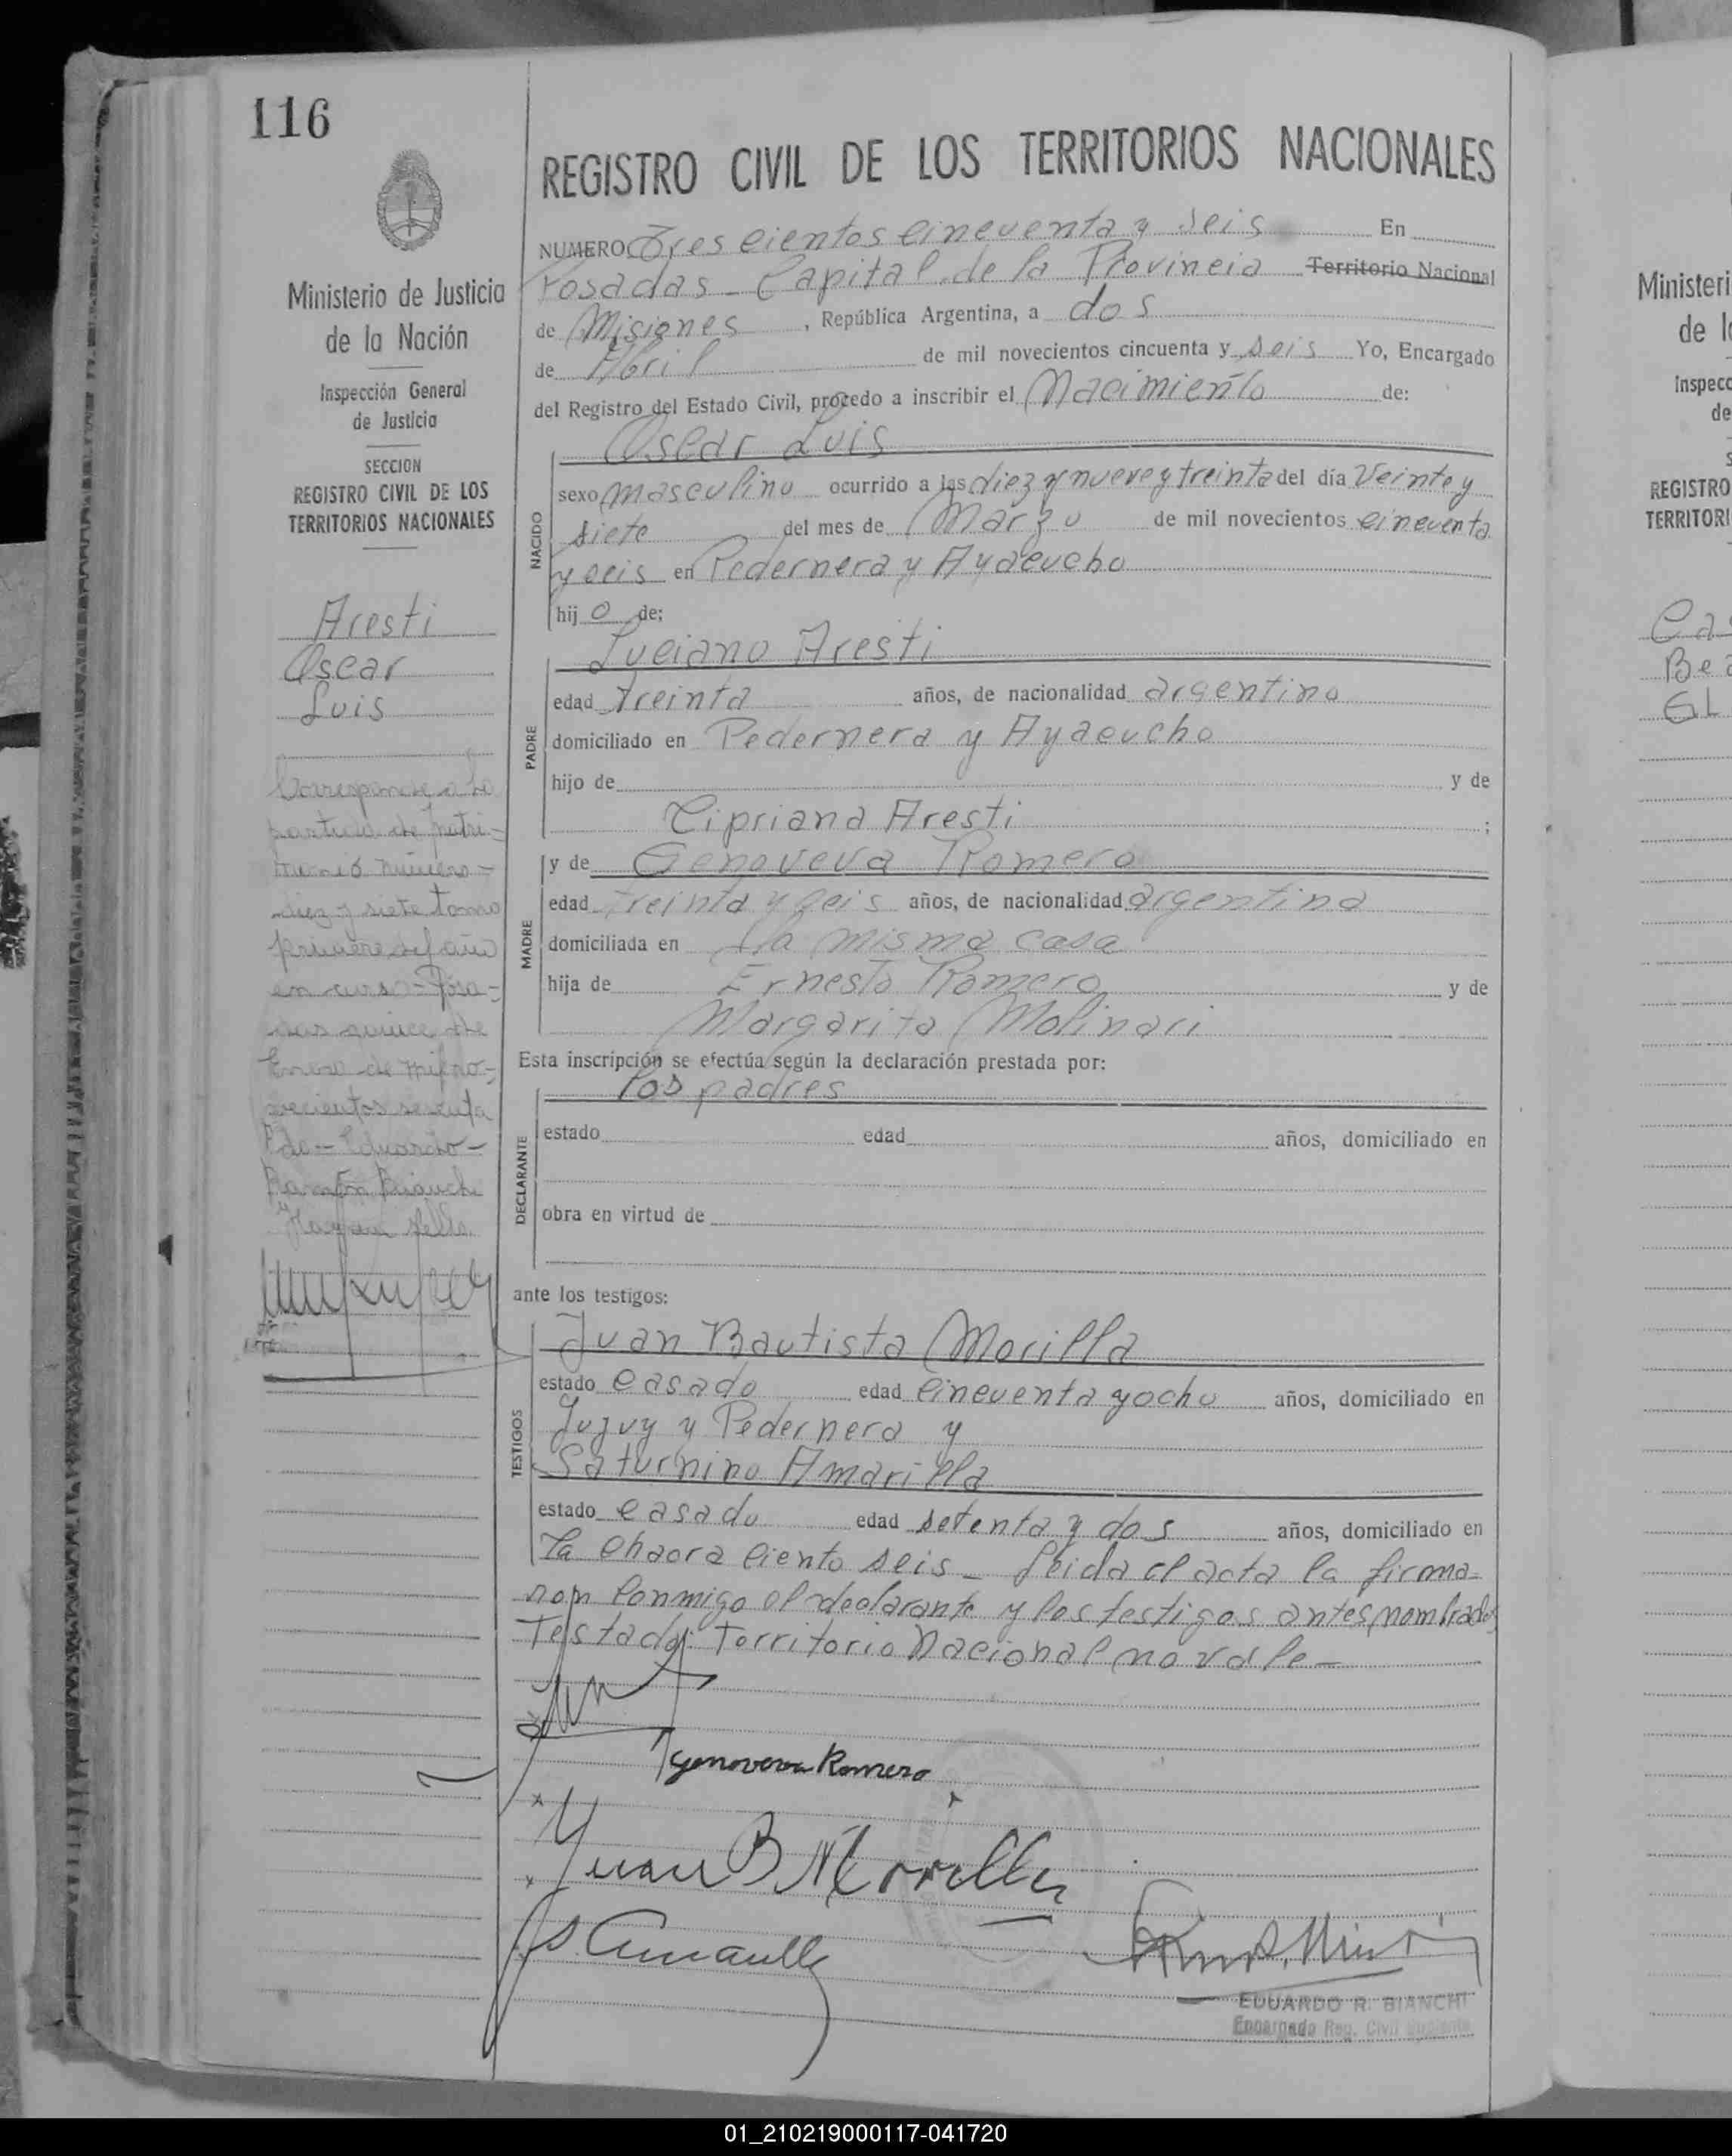 116
REGISTRO CIVIL DE LOS TERRITORIOS NACIONALES
NUMERO Tres cientos cincuenta y seis En
Posadas - Capital de la Provincia Territorio Nacional
de Misiones, República Argentina, a dos
de Abril de mil novecientos cincuenta y seis Yo, Encargado
del Registro del Estado Civil, procedo a inscribir el Nacimiento de:
Oscar Luis
NACIDO
sexo masculino ocurrido a las diez y nueve y treinta del día Veinte y
siete del mes de Marzo de mil novecientos cincuenta
y seis en Pedernera y Ayacucho
hij o de:
Luciano Aresti
PADRE
edad treinta años, de nacionalidad argentino
domiciliado en Pedernera y Ayacucho
hijo de y de
Cipriana Aresti ;
y de Genoveva Romero
MADRE
edad treinta y seis años, de nacionalidad argentina
domiciliada en la misma casa
hija de Ernesto Romero y de
Margarita Molinari
Esta inscripción se efectúa según la declaración prestada por:
los padres
DECLARANTE
estado edad años, domiciliado en
obra en virtud de
ante los testigos:
Juan Bautista Morilla
TESTIGOS
estado casado edad cincuenta y ocho años, domiciliado en
Jujuy y Pedernera y
Saturnino Amarilla
estado casado edad setenta y dos años, domiciliado en
la chacra ciento seis - Leida el acta la firma-
ron conmigo el declarante y los testigos antes nombrados
Testado: Territorio Nacional no vale -
Genoveva Romero
Juan B Morilla
EDUARDO R. BIANCHI
Encargado Reg. Civil Suplente
Ministerio de Justicia
de la Nación
Inspección General
de Justicia
SECCION
REGISTRO CIVIL DE LOS
TERRITORIOS NACIONALES
Aresti
Oscar
Luis
Corresponde a la
partida de matri-
monio número -
diez y siete tomo
primero del año
en curso - Posa-
das quince de
Enero de mil no-
vecientos sesenta
Fdo - Eduardo -
Ramón Bianchi
Hay un sello.
Ministeri
de l
Inspecc
de
S
REGISTRO
TERRITORI
Ca
Bea
GL
01_210219000117-041720